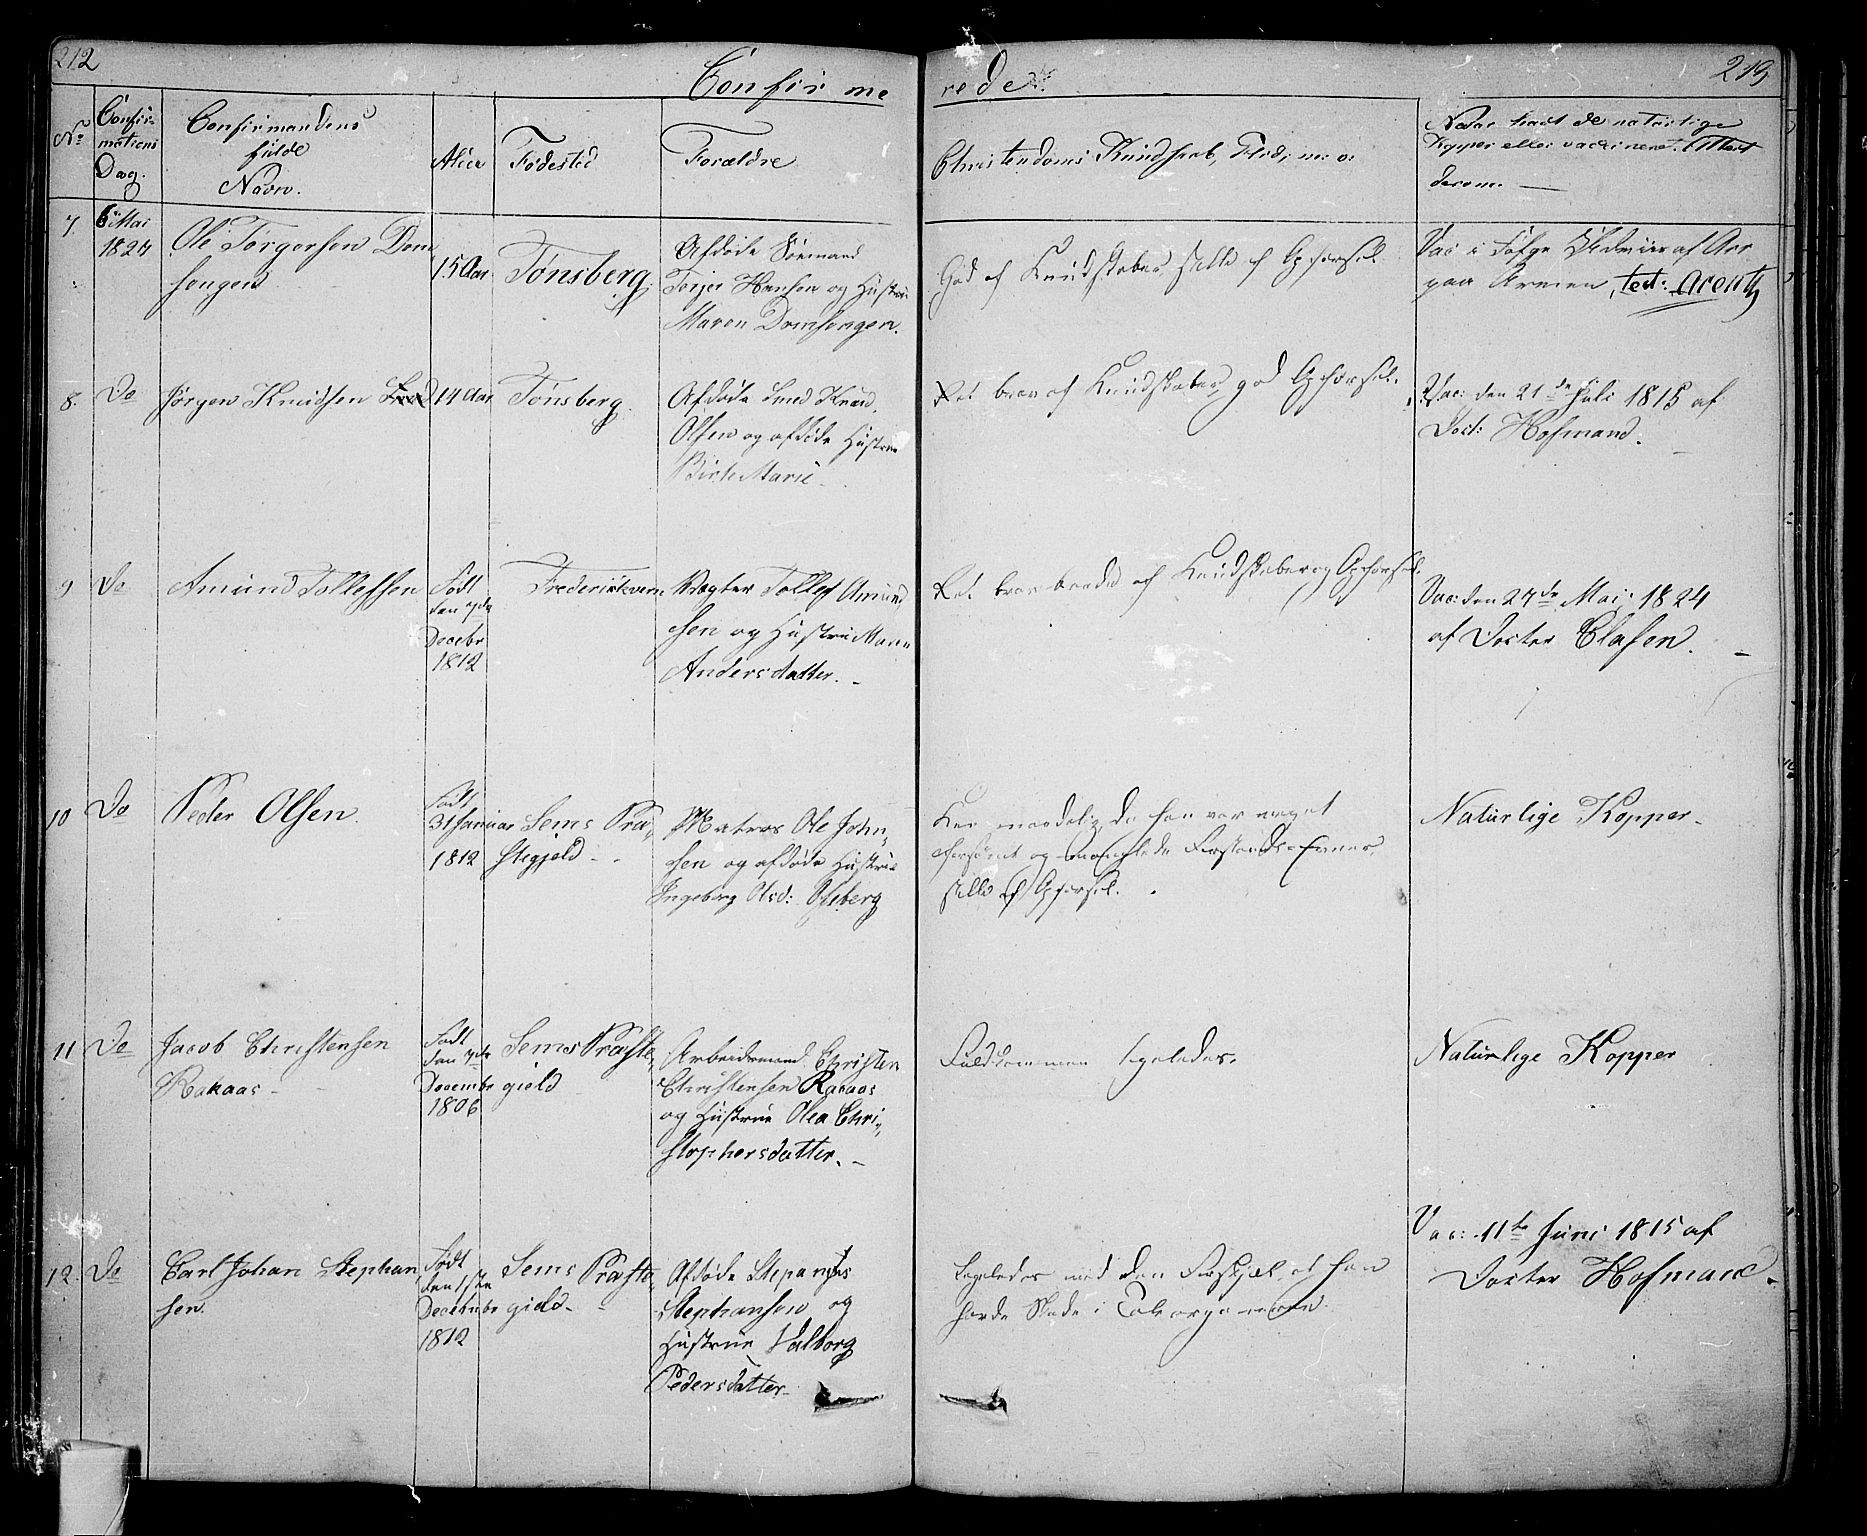 212
Confirme
rede
213
No
Confir-
mations
Dag.
Confirmandens
fulde
Navn.
Alder
Fødested
Forældre
Christendoms Kundskab, Flid, m: v:
Naar havt de naturlige
Kopper eller vaccineret. Attest
derom. —
7
6te Mai
1824
Ole Torgersen Dom
sengen
15 Aar
Tønsberg.
Afdøde Søemand
Torjer Hansen og Hustrue
Maren Domsengen.
God af Kundskaber, stille af Opførsel
Vac: i Følge af Arr
paa Armen, test: Arentz
8.
Do
Jørgen Knudsen
14 Aar
Tønsberg.
Afdøde Smed Knud
Olsen og afdøde Hustrue
Birte Marie.
Ret brav af Kundskaber, god Opførsel.
Vac: den 21de Juli 1815 af
Doct: Hofmand.
9
Do
Amund Tollefsen
Født
den 7de
Decebr
1812
Frederiksværn
Vægter Tollef Amund
sen og Hustrue Maren
Andersdatter. -
Ret brav baade af Kundskaber og Opførsel.
Vac: den 27de Mai 1824
af Docter Clasen. -
10
Do
Peder Olsen.
Født
31 Januar
1812
Sems Præ-
stegjeld -
Matros Ole John-
sen og afdøde Hustrue
Ingeborg Olsd: Oseberg
maadelig, da han var meget
forsømt og manglede Forstands-Evner,
stille af Opførsel.
Naturlige Kopper.
11
Do
Jacob Christensen
Rakaas -
Født
den 7de
Decembr
1806
Sems Præste-
gield
Arbeidsmand Christen
Christensen Rakaas
og Hustrue Olea Chri-
stophersdatter. -
Fuldkommen ligeledes.
Naturlige Kopper
12.
Do
Carl Johan Stephan
sen.
Født
den 1ste
Decembr
1812
Sems Præste-
gield -
Afdøde
Stephansen og
Hustrue Valborg
Pedersdatter -
Ligeledes med den Forskjel, at han
havde
Vac: 11te Juni 1815 af
Docter Hofmand.